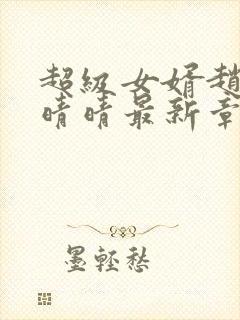 超级女婿趙
晴晴最新章
墨轻愁